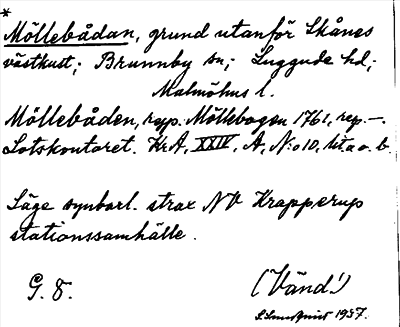 *
Möllebådan, grund utanför Skånes
västkust; Brunnby sn; Luggude hd;
Malmöhus l.
Möllebåden, resp. Möllebogen 1761, rep. -.
Lotskontoret. Kr.A, XXIV, A, N:o 10, lit. a o. b.
Läge synbarl. strax NV Krapperup
stationssamhälle.
G. 8. (Vänd!)
1937.